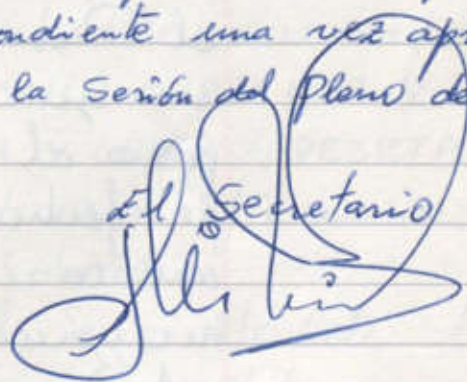 ondiente una vez apr
la Sesión del Pleno de
El Secretario